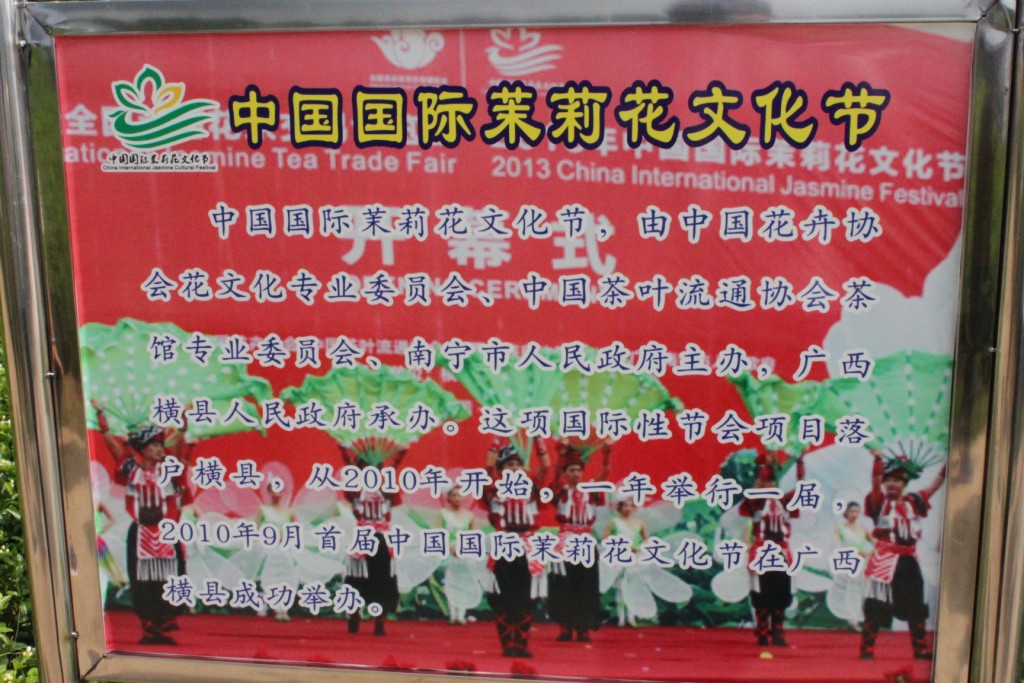 中国国际茉莉花文化节
中国国际茉莉花文化节
China International Jasmine Cultural Festival
2013 China International Jasmine Festival
Tea Trade Fair
开幕式
中国国际茉莉花文化节，由中国花卉协
会花文化专业委员会、中国茶叶流通协会茶
馆专业委员会、南宁市人民政府主办，广西
横县人民政府承办。这项国际性节会项目落
户横县，从2010年开始，一年举行一届，
2010年9月首届中国国际茉莉花文化节在广西
横县成功举办。